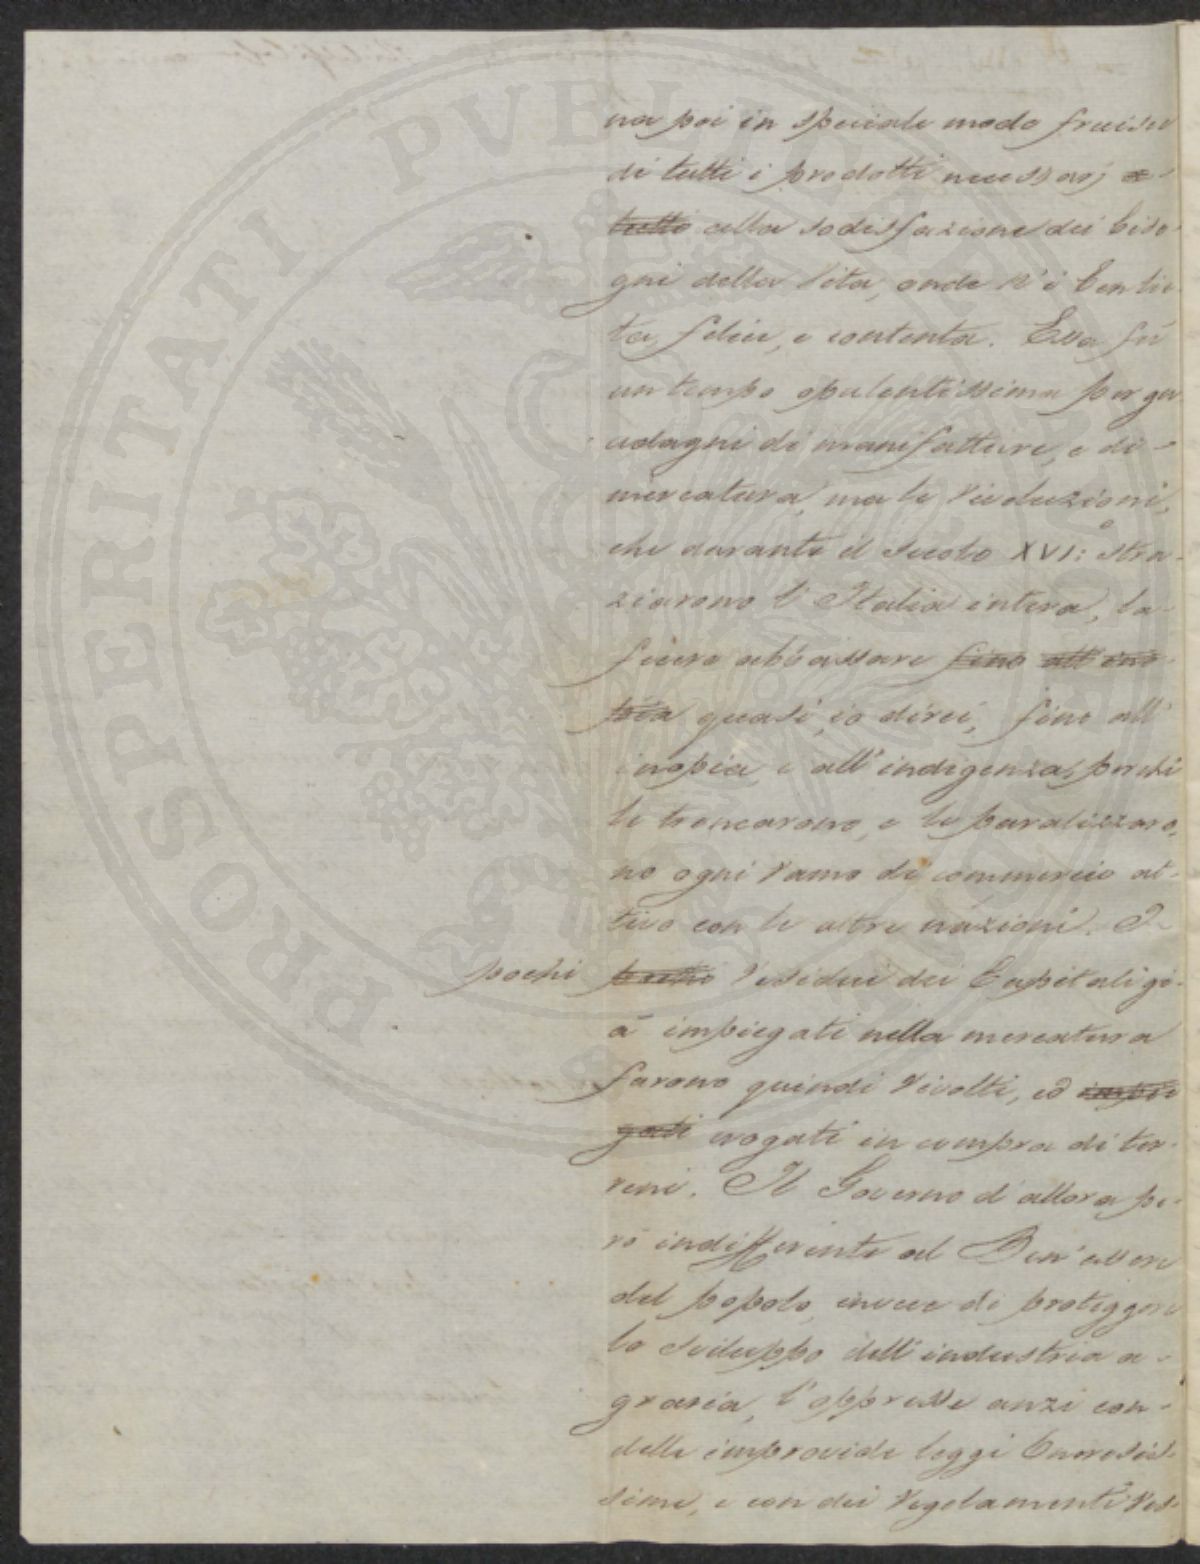 na poi in speciale modo fruisce
di tutti i prodotti necessarj e
tutto alla sodisfazione dei biso-
gni della Vita, onde n'è ben lie-
ta, felice, e contenta. Essa fù
un tempo opulentissima per gu-
adagni di manifatture, e di
mercatura, ma le rivoluzioni,
che durante il Secolo XVI:° stra-
ziarono l'Italia intera, la
fecero abbassare fino all'ino-
pia quasi, io direi, fino all'
inopia, e all'indigenza, perchè
le troncarono, e le paralizzaro-
no ogni ramo di commercio at-
tivo con le altre nazioni. I
pochi pochi residui dei Capitali gi-
à impiegati nella mercatura
furono quindi rivolti, ed impie
gati erogati in compra di ter-
reni. Il Governo d'allora pe-
rò indifferente al Ben'essere
del popolo, invece di proteggere
lo sviluppo dell'industria a-
graria, l'oppresse anzi con
delle improvide leggi onerosis-
sime, e con dei regolamenti res-
PROSPERITATI PVBLICAE